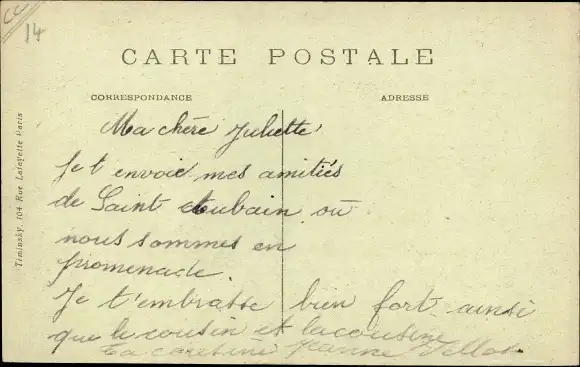 CC
14
CARTE POSTALE
CORRESPONDANCE
ADRESSE
Timinsky, 104 Rue Lafayette Paris
Ma chère Juliette
Je t envoie mes amitiés
de Saint Aubain où
nous sommes en
promenade.
Je t'embrasse bien fort ainsi
que le cousin et la cousine
Ta cousine Jeanne